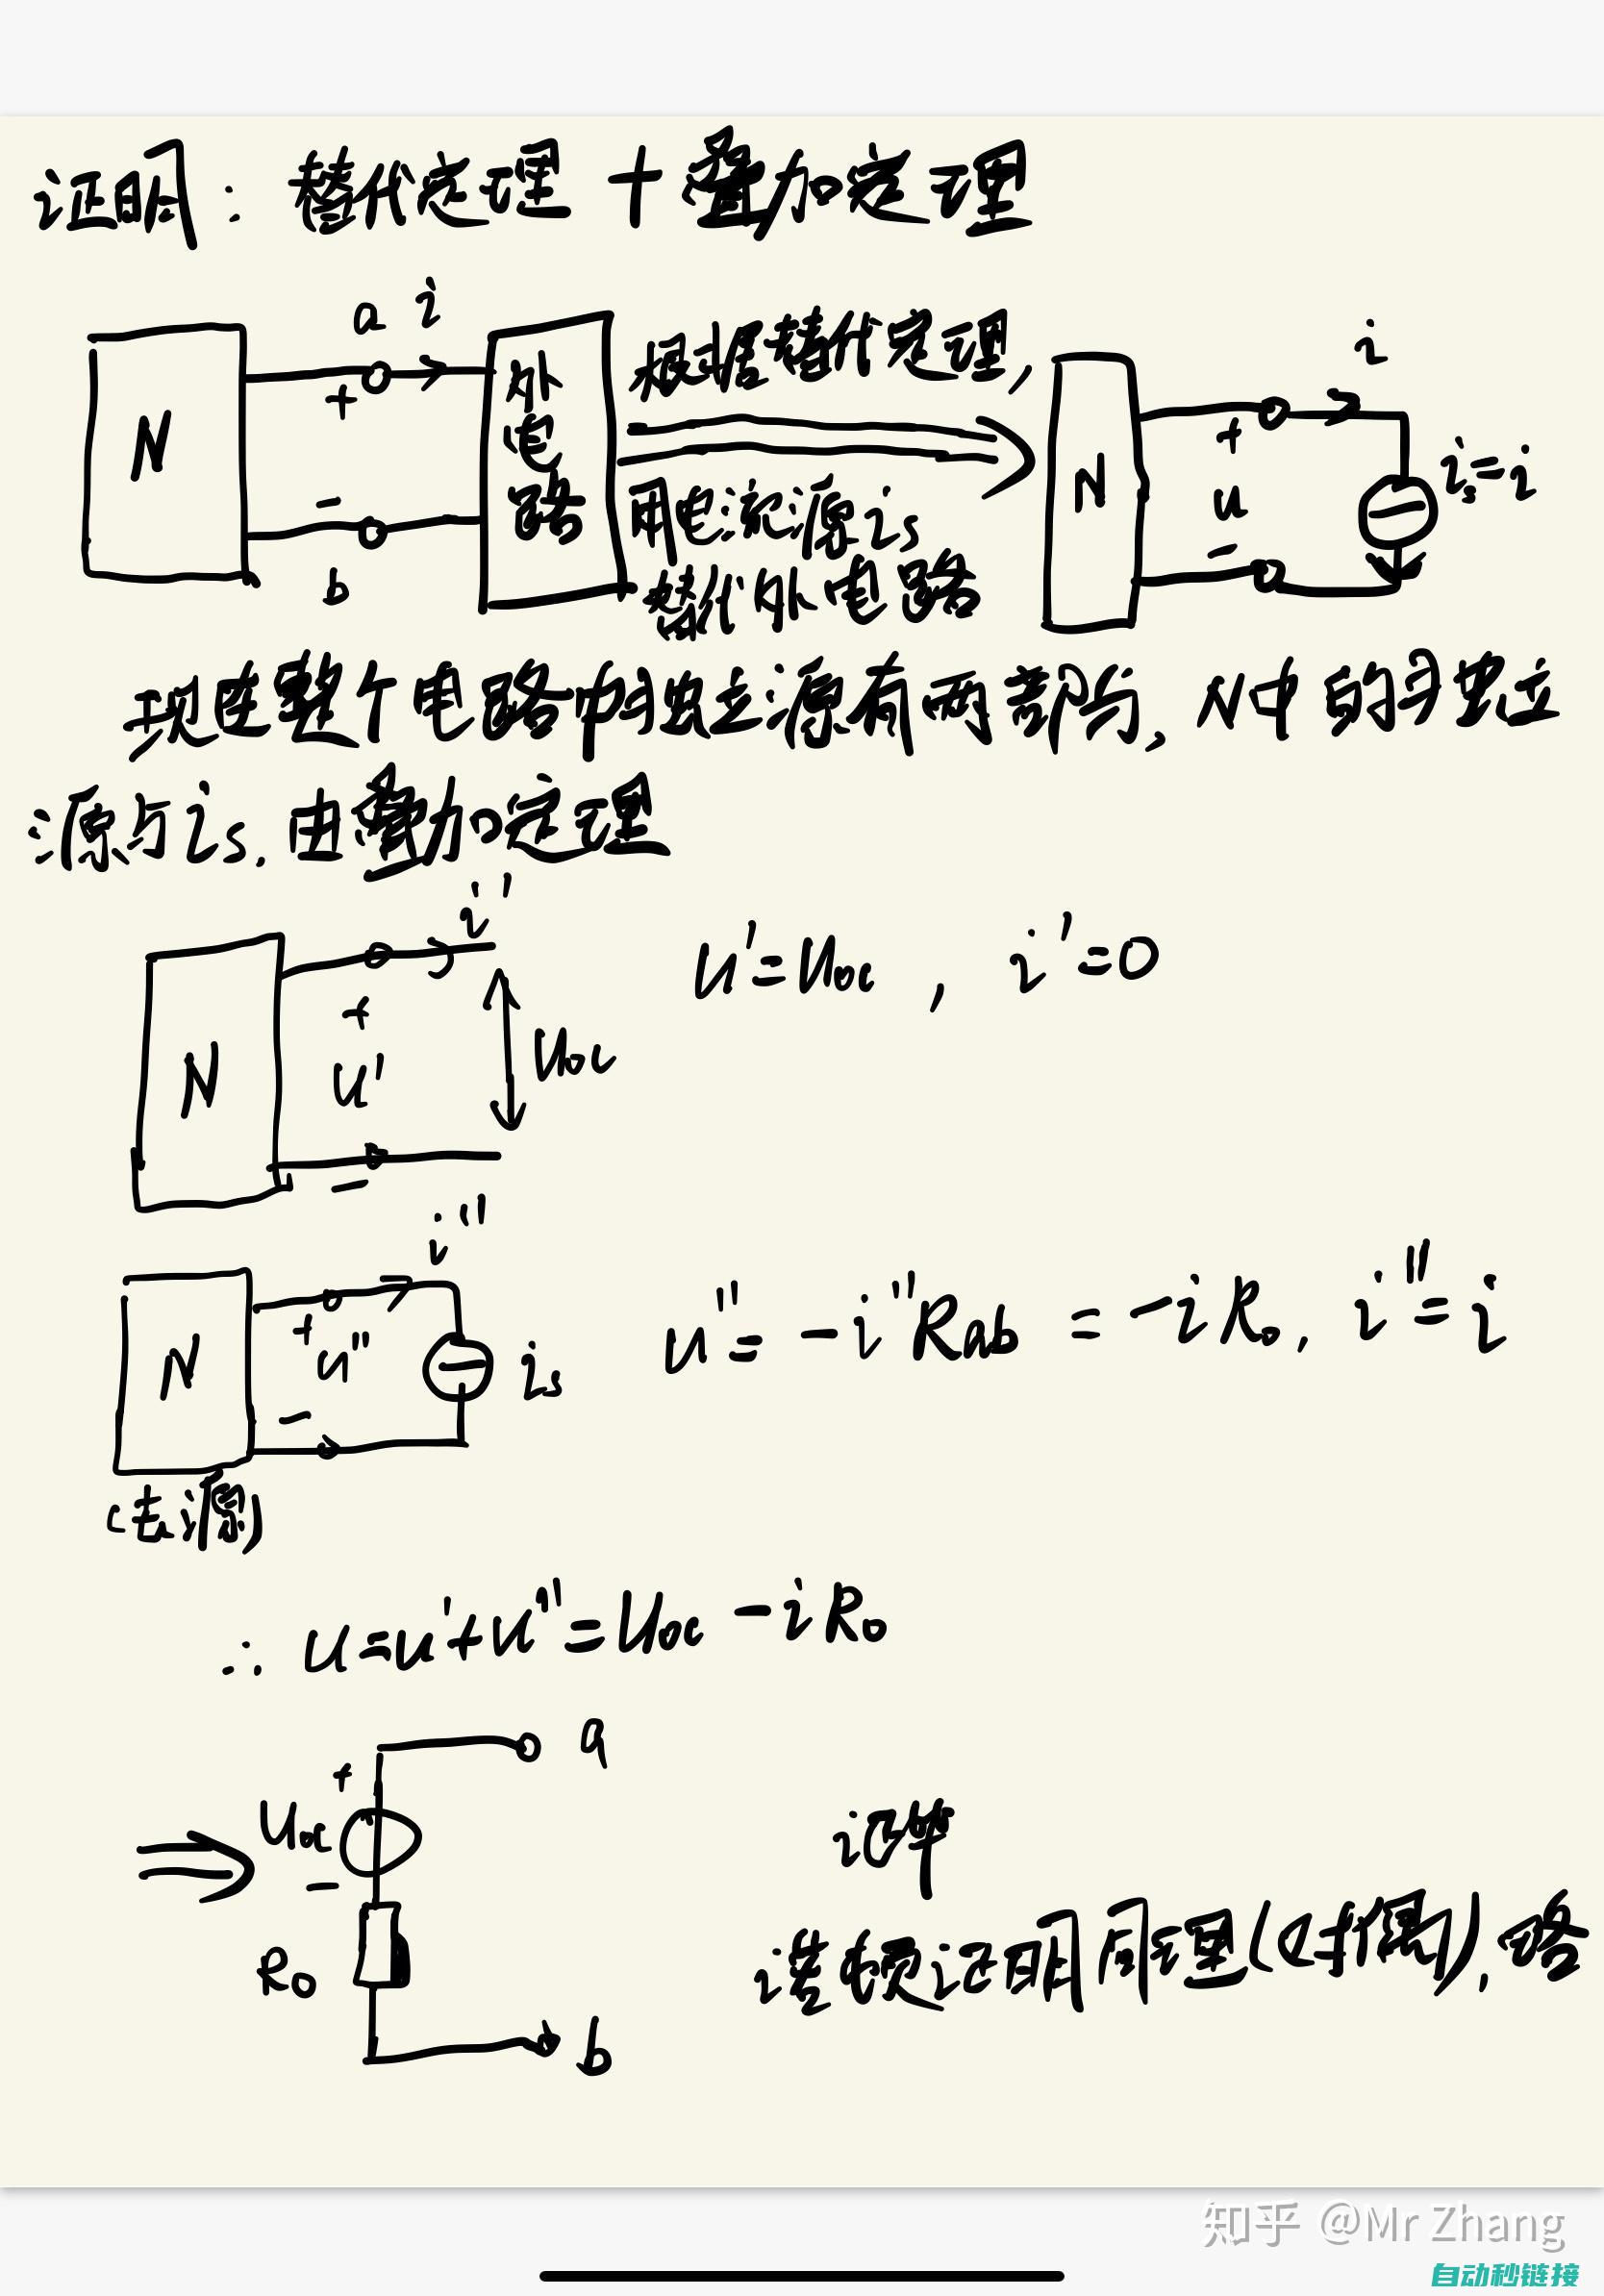 证明：替代定理 + 叠加定理
a i
N
+
-
b
外电路
根据替代定理，
用电流源is
替代外电路
i
N
+
u
-
is=i
现在整个电路中独立源有两部分，N中的独立
源与is，由叠加定理
i'
N
+
u'
-
Uoc
u'=Uoc , i'=0
i''
N
+
u''
-
is
(去源)
u''= -i''Rab = -iRo, i''=i
∴ u=u'+u''=Uoc -iRo
a
+
Uoc
-
Ro
b
证毕
诺顿证明同理(对偶),略
知乎 @Mr Zhang
自动秒链接